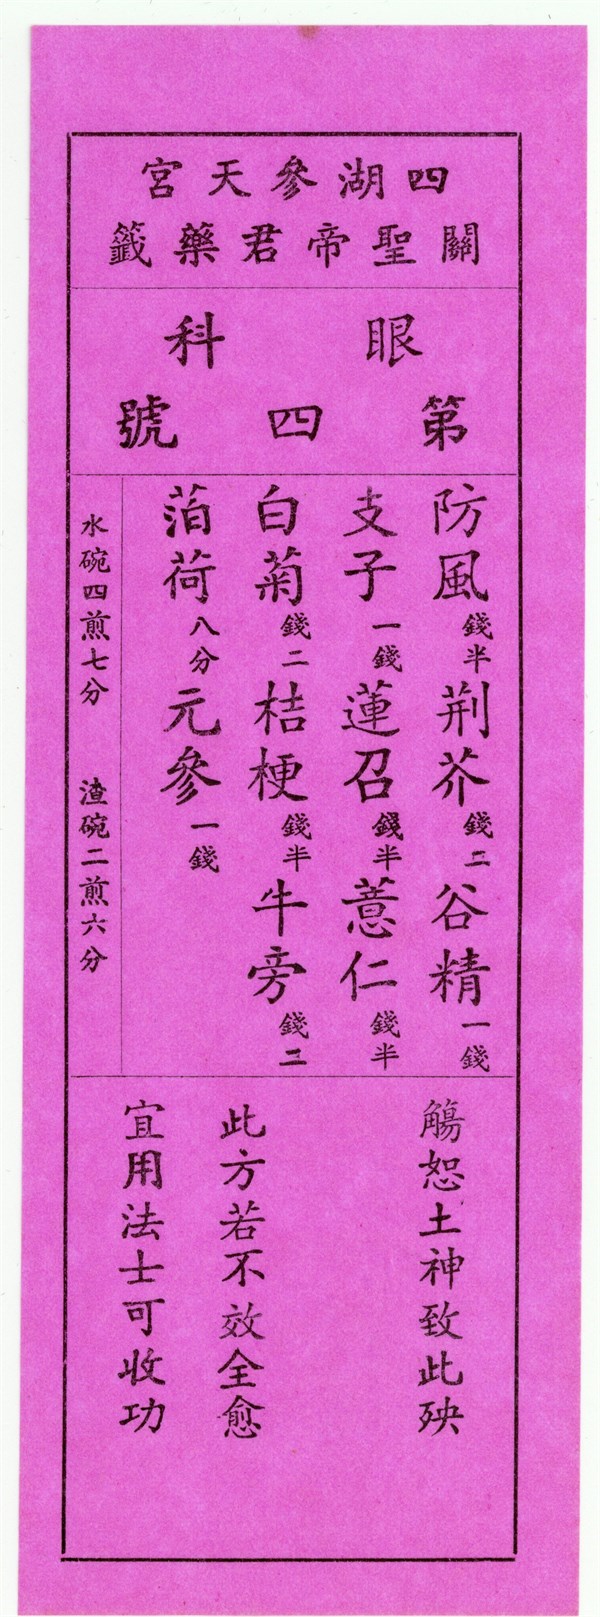 四湖參天宮
關聖帝君藥籤
眼科
第四號
防風錢半 荆芥錢二 谷精一錢
支子一錢 蓮召錢半 薏仁錢半
白菊錢二 桔梗錢半 牛旁錢二
萡荷八分 元參一錢
水碗四煎七分 渣碗二煎六分
觴恕土神致此殃
此方若不效全愈
宜用法士可收功